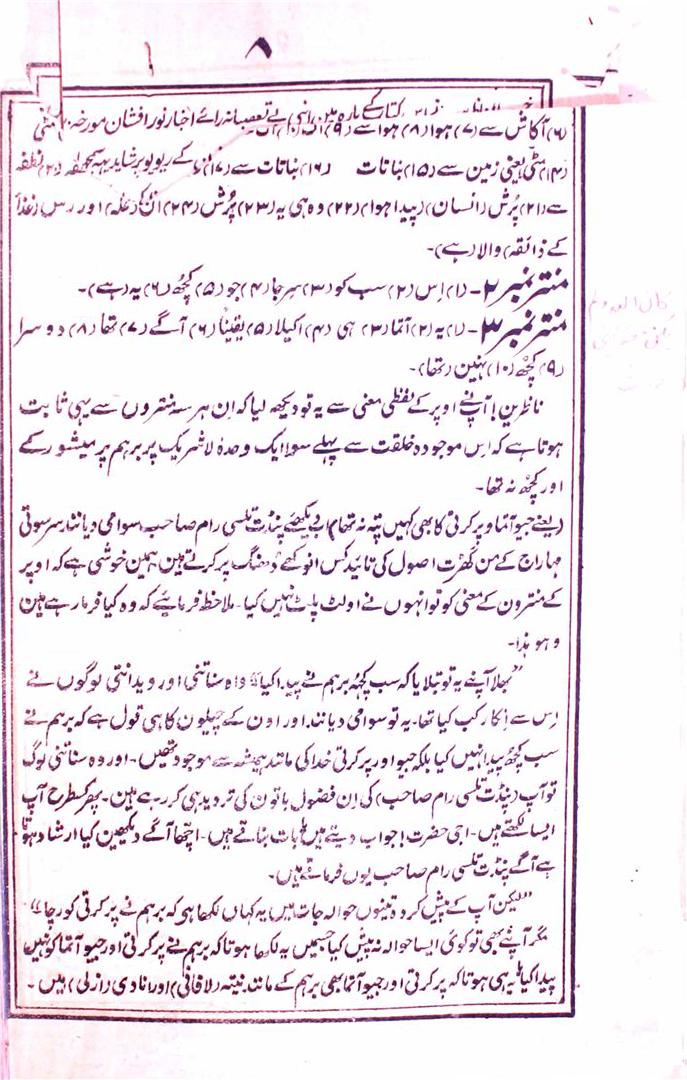 ۸
(۶) آکاش سے (۷) ہوا (۸) ہوا سے (۹) بے تعصبانہ رائے اخبار نور افشان مورخہ مٹی
(۱۴) مٹی یعنی زمین سے (۱۵) بناتات (۱۶) بناتات سے (۱۷) کے ریویو پر شاید یہہ سمجھے نطفہ
سے (۲۱) پُرش (انسان) (پیدا ہوا) (۲۲) وہ ہی یہ (۲۳) پُرش (۲۴) ان (غلہ) اور رس (غذا
کے ذائقہ) والا (ہے)۔
منتر نمبر ۲۔ (۱) اِس (۲) سب کو (۳) سِرجا (۴) جو (۵) کچُھ (۶) یہ (ہے)۔
منتر نمبر ۳۔ (۱) یہ (۲) آتما (۳) ہی (۴) اکیلا (۵) یقیناً (۶) آگے (۷) تھا (۸) دوسرا
(۹) کچُھ (۱۰) نہین (تھا)۔
ناظرین! آپنے اوپر کے لفظی معنی سے یہ تو دیکھ لیا کہ اِن ہر سہ منتروں سے یہی ثابت
ہوتا ہے کہ اِس موجودہ خلقت سے پہلے سوا ایک وحدہٗ لاشریک پر برہم پرمیشور کے
اور کچُھ نہ تھا۔
(یعنے جیو آتما و پرکرتی کا بھی کہیں پتہ نہ تھا) اب دیکھئے پنڈت تلسی رام صاحب سوامی دیانند سرسوتی
مہاراج کے من گھڑت اصول کی تائید کس انوکھے ڈھنگ پر کرتے ہین ہمین خوشی ہے کہ اوپر
کے منترون کے معنی کو تو انہوں نے اولٹ پلٹ نہیں کیا۔ ملاحظہ فرمائیے کہ وہ کیا فرما رہے ہین
وہو ہذا۔
”بھلا آپنے یہ تو تبلایا کہ سب کچُھ برہم نے پیدا کیا“ واہ سناتنی اور ویدانتی لوگوں نے
اِس سے اِنکار کب کیا تھا۔ یہ تو سوامی دیانند اور اون کے چیلون کا ہی قول ہے کہ برہم نے
سب کچُھ پیدا نہیں کیا بلکہ جیو اور پرکرتی خدا کی مانند ہمیشہ سے موجود تھیں۔ اور وہ سناتنی لوگ
تو آپ (پنڈت تلسی رام صاحب) کی اِن فضول باتون کی تردید ہی کر رہے ہین۔ پھر کسطرح آپ
ایسا لکھتے ہیں۔ اجی حضرت! جواب دیتے ہیں یا بات بناتے ہیں۔ اچھا آگے دیکھین کیا ارشاد ہوتا
ہے آگے پنڈت تلسی رام صاحب یوں فرماتے ہیں۔
”لیکن آپ کے پیش کردہ تینوں حوالہ جات میں یہ کہاں لکھا ہی کہ برہم نے پرکرتی کو رچا“۔
مگر آپنے بھی تو کوئی ایسا حوالہ نہ پیش کیا جسمیں یہ لکھا ہوتا کہ برہم نے پرکرتی اور جیو آتما کو نہیں
پیدا کیا یا یہ ہی ہوتا کہ پرکرتی اور جیو آتما بھی برہم کے مانند نِیتہ (لافانی) اور انادی (ازلی) ہیں۔